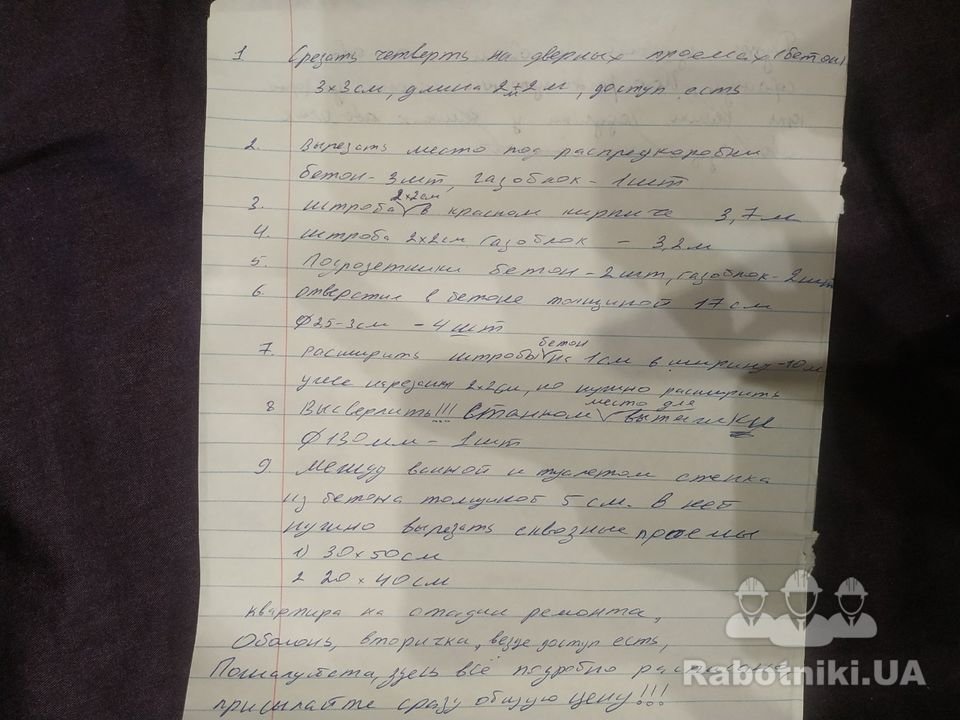 1 Срезать четверть на дверных проемах (бетон)
3х3см, длина 2м+2м, доступ есть
2. Вырезать место под распредкоробки
бетон - 3шт, газоблок - 1шт
3. штроба 2х2см в красном кирпиче 3,7м
4. штроба 2х2см газоблок - 3,2м
5. Подрозетники бетон - 2шт, газоблок - 2шт
6. отверстия в бетоне толщиной 17см
Ф25-3см - 4шт
7. расширить штробы бетон на 1см в ширину - 10м
уже нарезаны 2х2см, но нужно расширить
8 Высверлить!!! станком место для вытяжки
Ф130мм - 1шт
9. Между ванной и туалетом стенка
из бетона толщиной 5см. В ней
нужно вырезать сквозные проемы
1) 30х50см
2 20х40см
квартира на стадии ремонта,
Оболонь, вторичка, везде доступ есть,
Пожалуйста, здесь всё подробно
присылайте сразу общую цену!!!
Rabotniki.UA